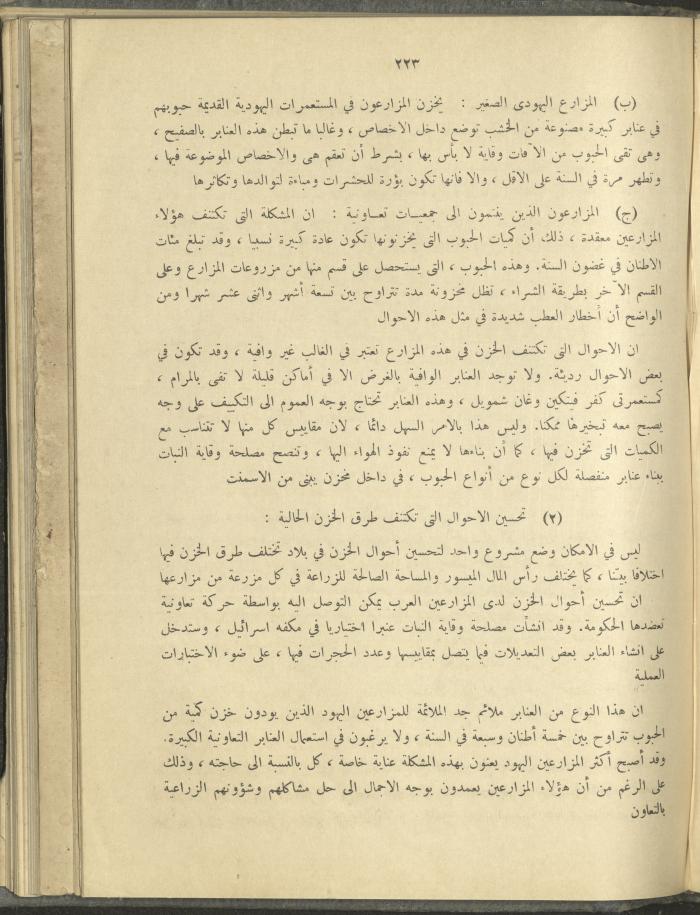 ٢٢٣
(ب) المزارع اليهودى الصغير : يخزن المزارعون في المستعمرات اليهودية القديمة حبوبهم
في عنابر كبيرة مصنوعة من الخشب توضع داخل الاخصاص ، وغالبا ما تبطن هذه العنابر بالصفيح ،
وهى تقى الحبوب من الآفات وقاية لا بأس بها ، بشرط أن تعقم هى والاخصاص الموضوعة فيها ،
وتطهر مرة في السنة على الاقل ، والا فانها تكون بؤرة للحشرات ومباءة لتوالدها وتكاثرها
(ج) المزارعون الذين ينتمون الى جمعيــات تعــاونية : ان المشكلة التى تكتنف هؤلاء
المزارعين معقدة ، ذلك أن كميات الحبوب التى يخزنونها تكون عادة كبيرة نسبيا ، وقد تبلغ مئات
الاطنان في غضون السنة. وهذه الحبوب ، التى يستحصل على قسم منها من مزروعات المزارع وعلى
القسم الآخر بطريقة الشراء ، تظل مخزونة مدة تتراوح بين تسعة أشهر واثنى عشر شهرا ومن
الواضح أن أخطار العطب شديدة في مثل هذه الاحوال
ان الاحوال التى تكتنف الخزن في هذه المزارع تعتبر في الغالب غير وافية ، وقد تكون في
بعض الاحوال رديئة. ولا توجد العنابر الوافية بالغرض الا في أماكن قليلة لا تفى بالمرام ،
كمستعمرتى كفر فيتكين وغان شمويل ، وهذه العنابر تحتاج بوجه العموم الى التكييف على وجه
يصبح معه تبخيرها ممكنا. وليس هذا بالامر السهل دائما ، لان مقاييس كل منها لا تتناسب مع
الكميات التى تخزن فيها ، كما أن بناءها لا يمنع نفوذ الهواء اليها ، وتنصح مصلحة وقاية النبات
ببناء عنابر منفصلة لكل نوع من أنواع الحبوب ، في داخل مخزن يبنى من الاسمنت
(٢) تحسين الاحوال التى تكتنف طرق الخزن الحالية :
ليس في الامكان وضع مشروع واحد لتحسين أحوال الخزن في بلاد تختلف طرق الخزن فيها
اختلافا بيّنا ، كما يختلف رأس المال الميسور والمساحة الصالحة للزراعة في كل مزرعة من مزارعها
ان تحسين أحوال الخزن لدى المزارعين العرب يمكن التوصل اليه بواسطة حركة تعاونية
تعضدها الحكومة. وقد انشأت مصلحة وقاية النبات عنبرا اختياريا في مكفه اسرائيل ، وستدخل
على انشاء العنابر بعض التعديلات فيما يتصل بمقاييسها وعدد الحجرات فيها ، على ضوء الاختبارات
العملية
ان هذا النوع من العنابر ملائم جد الملائمة للمزارعين اليهود الذين يودون خزن كمية من
الحبوب تتراوح بين خمسة أطنان وسبعة في السنة ، ولا يرغبون في استعمال العنابر التعاونية الكبيرة.
وقد أصبح أكثر المزارعين اليهود يعنون بهذه المشكلة عناية خاصة ، كل بالنسبة الى حاجته ، وذلك
على الرغم من أن هؤلاء المزارعين يعمدون بوجه الاجمال الى حل مشاكلهم وشؤونهم الزراعية
بالتعاون